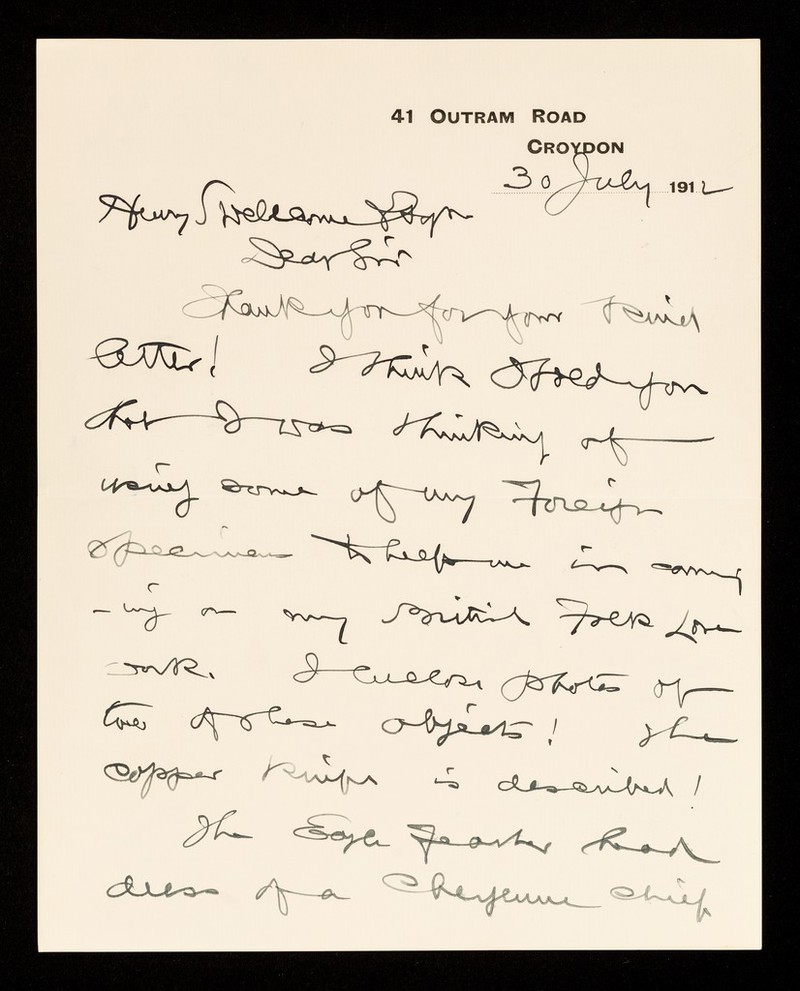 41 OUTRAM ROAD
CROYDON
30 July 1912
Henry S Wellcome Esqre
Dear Sir
Thank you for your kind
letter! I think I told you
that I was thinking of
using some of my Foreign
specimens to help me in carry
-ing on my British Folk Lore
work. I enclose photos of
two of these objects! The
copper knife is described!
The Eagle Feather head
dress of a Cheyenne chief